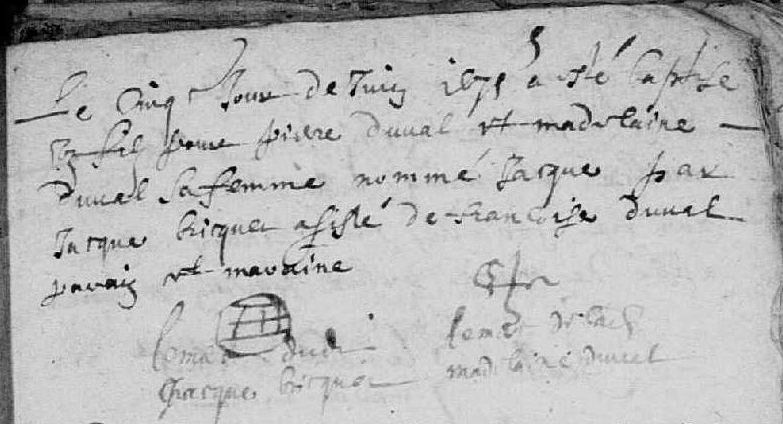 Le cinq Jour de Juin 1675 a esté baptise
Un fils pour pierre duval et madelaine
duval sa femme nommé Jacque par
Jacque bicquet asisté de francoise duval
parain et maraine
lemar du di
Jhacque bicquet
lemar de lad
madelaine duval